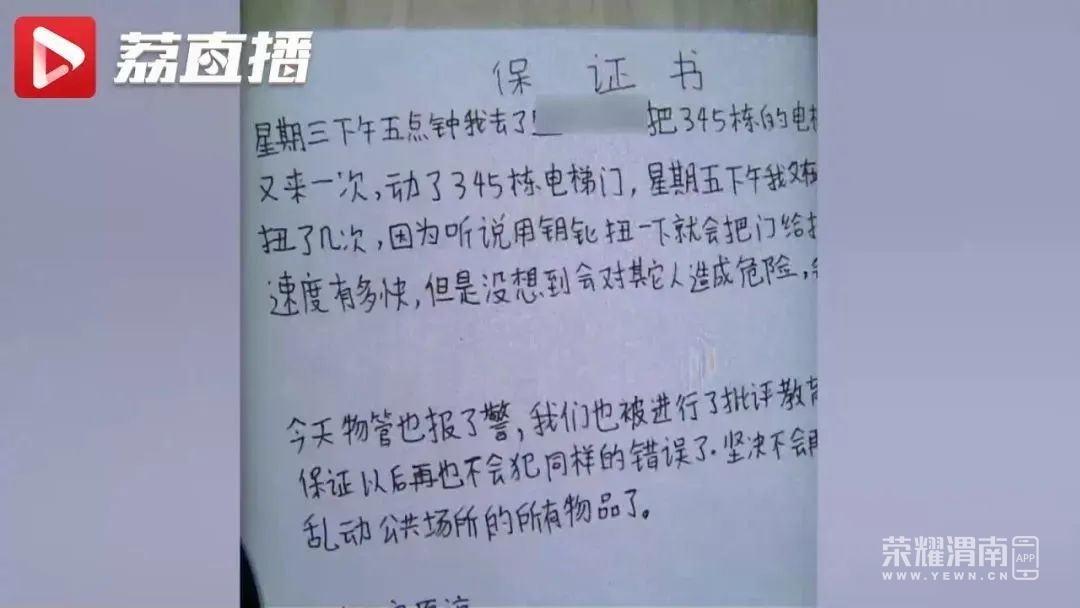 荔直播
保证书
星期三下午五点钟我去了 把345栋的电梯
又来一次,动了345栋电梯门,星期五下午我又
扭了几次,因为听说用钥匙扭一下就会把门给打
速度有多快,但是没想到会对其它人造成危险,
今天物管也报了警,我们也被进行了批评教育
保证以后再也不会犯同样的错误了.坚决不会再
乱动公共场所的所有物品了。
原谅
荣耀渭南
APP
WWW.YEWN.CN